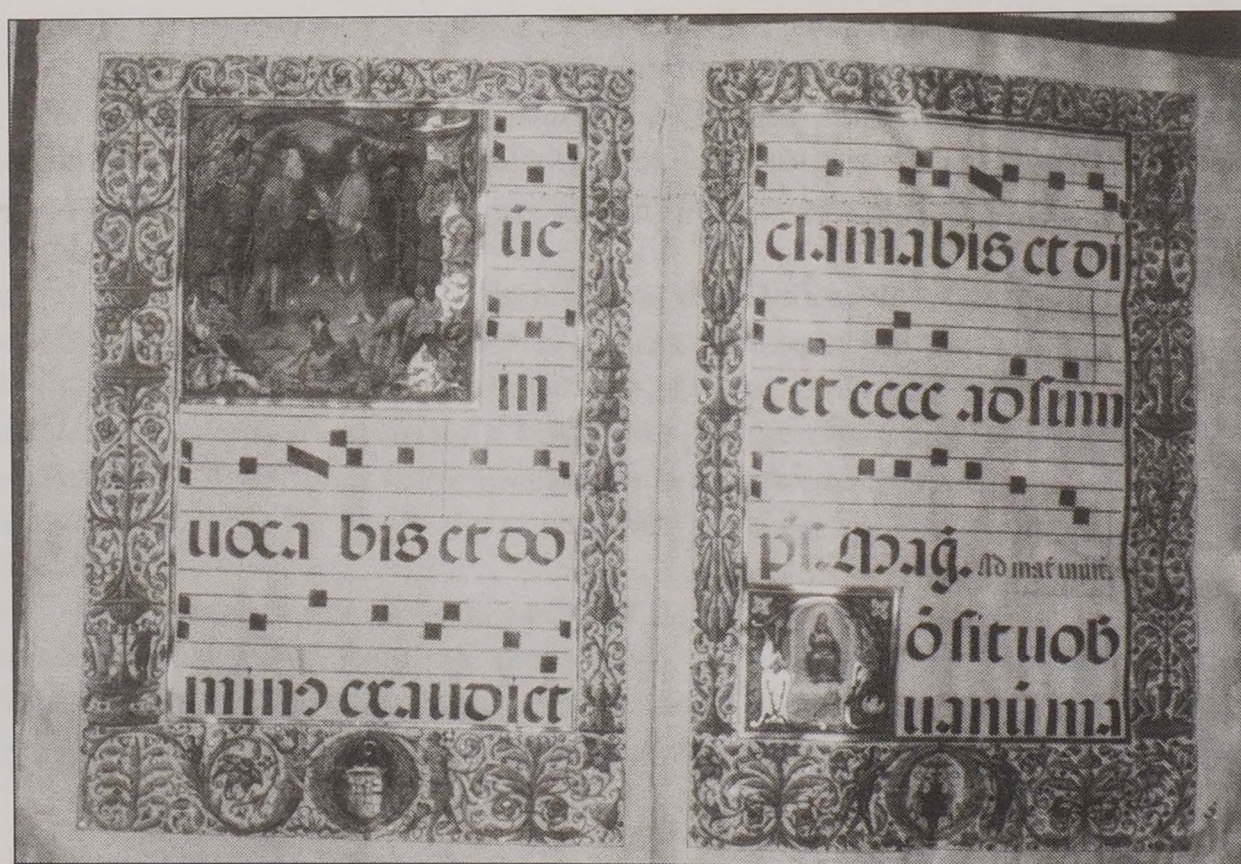 úc
in
uoca bis et do
minꝰ exaudiet
clamabis et di
cet ecce adsum
pſ. Mag̃. Ad mat̃ inuit.
ó sit uob̃
uanú ma